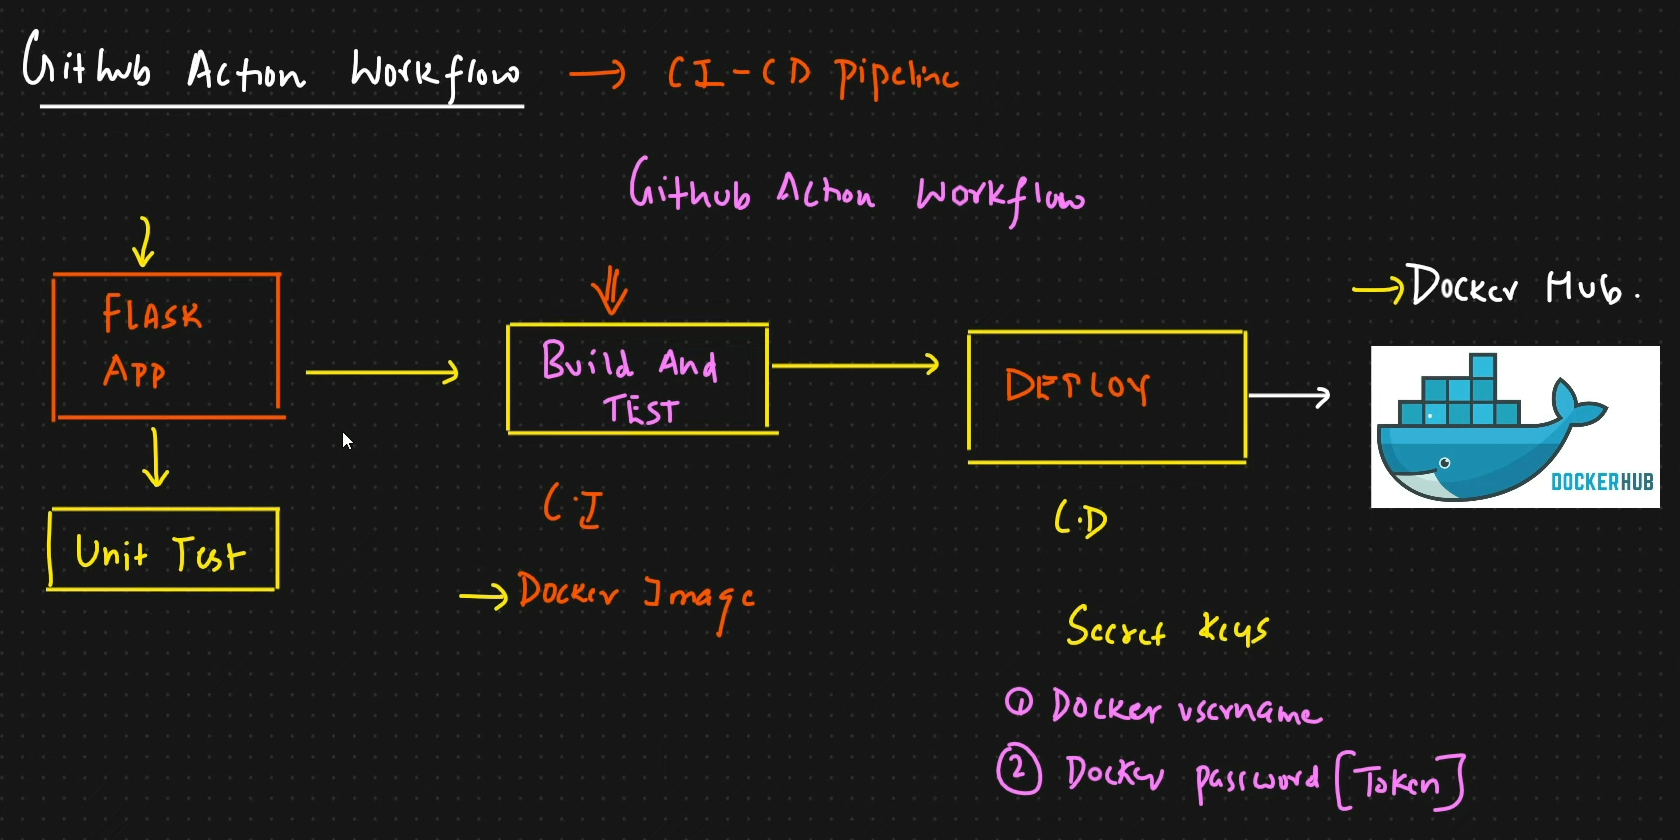 Github Action Workflow → CI-CD Pipeline
Github Action Workflow
FLASK
APP
Build And
TEST
DEPLOY
→ Docker Hub.
DOCKERHUB
Unit Test
C.I
C.D
→ Docker Image
Secret Keys
① Docker username
② Docker password [Token]